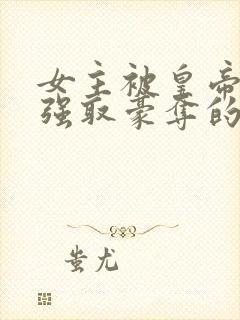 女主被皇帝
强取豪夺的
蚩尤